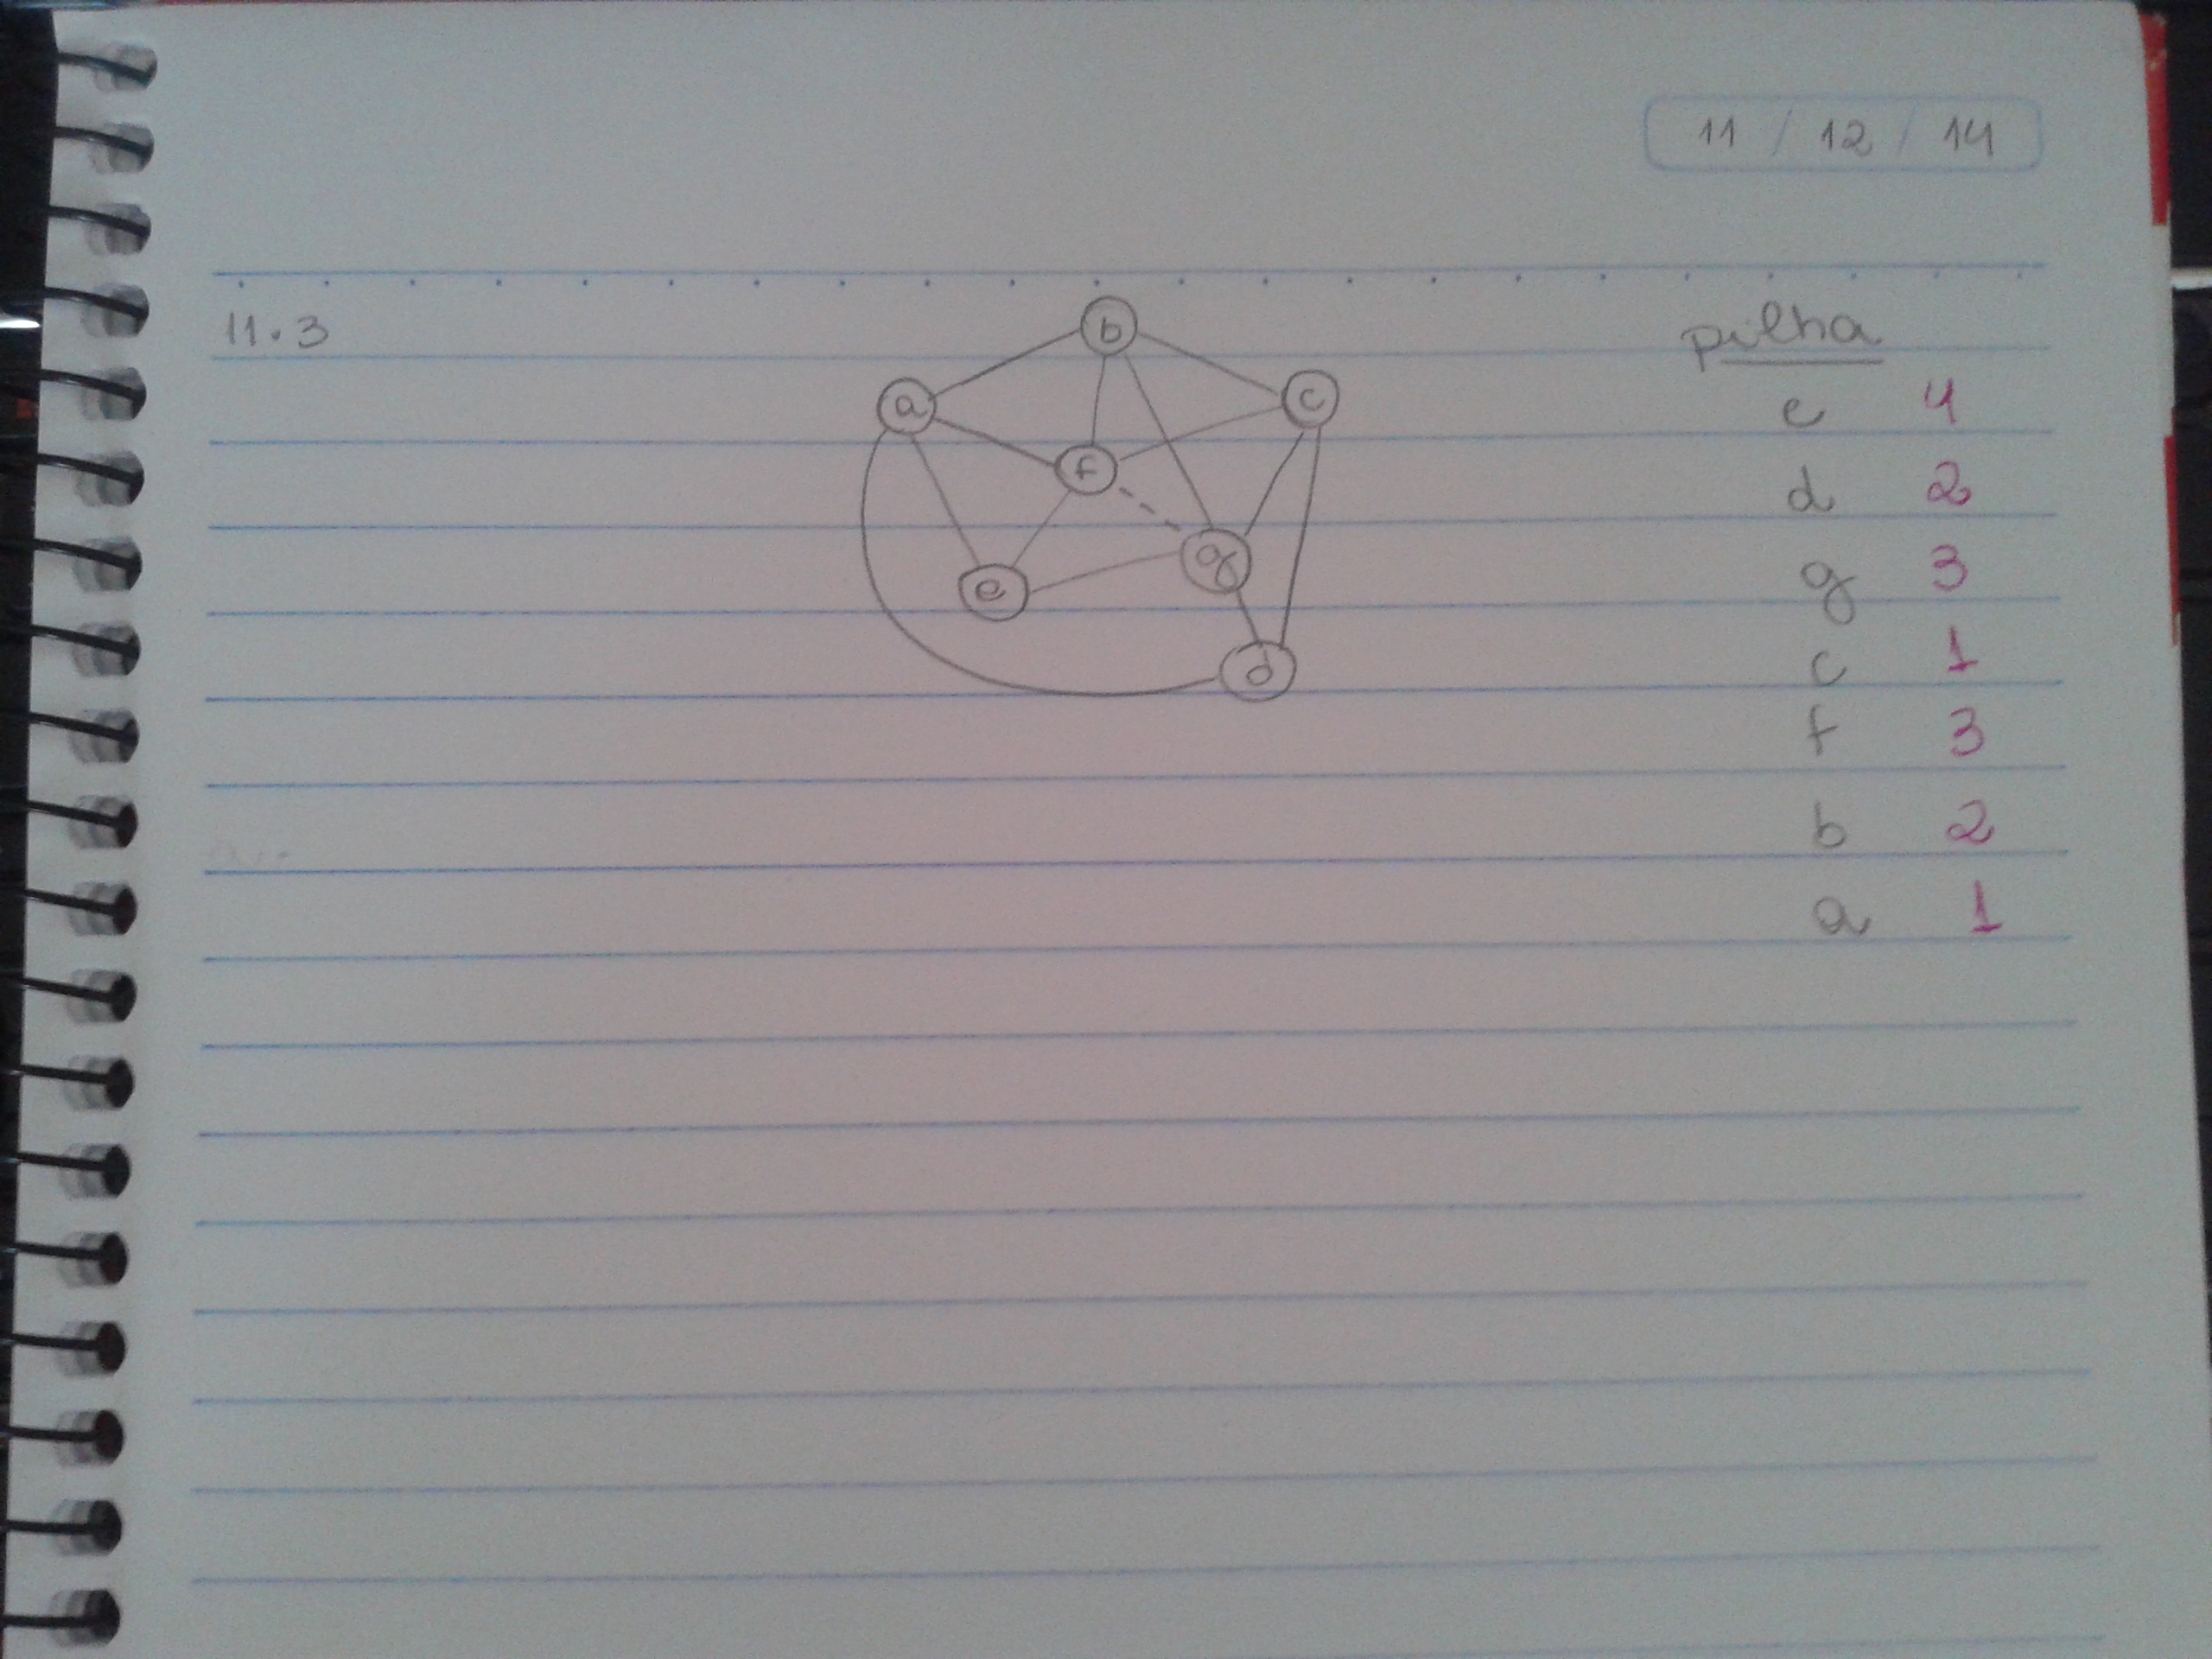 11 / 12 / 14
11.3
b
a
c
f
g
e
d
pilha
e 4
d 2
g 3
c 1
f 3
b 2
a 1